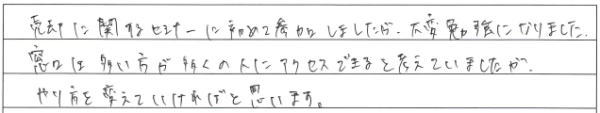 売却に関するセミナーに初めて参加しましたが、大変勉強になりました。
窓口は多い方が多くの人にアクセスできると考えていましたが、
やり方を変えていければと思います。